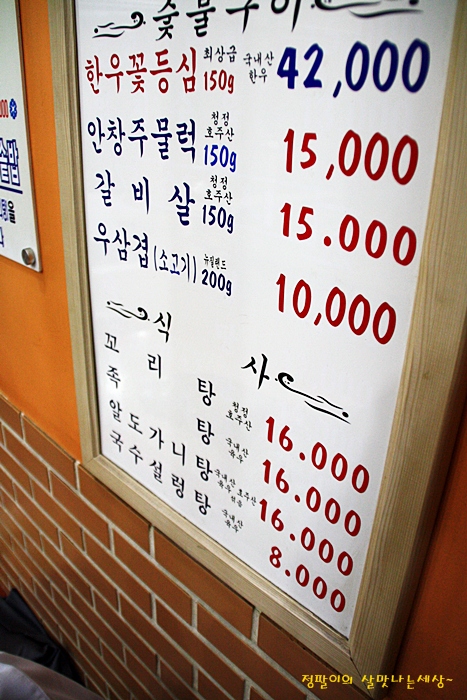 숯불구이
한우꽃등심 최상급 150g 국내산 한우 42,000
안창주물럭 청정 호주산 150g 15,000
갈비살 청정 호주산 150g 15.000
우삼겹(소고기) 뉴질랜드 200g 10,000
식사
꼬리탕 청정 호주산 16.000
족탕 국내산 육우 16.000
알도가니탕 국내산 육우 호주산 섞음 16.000
국수설렁탕 국내산 육우 8.000
정팔이의 살맛나는세상~